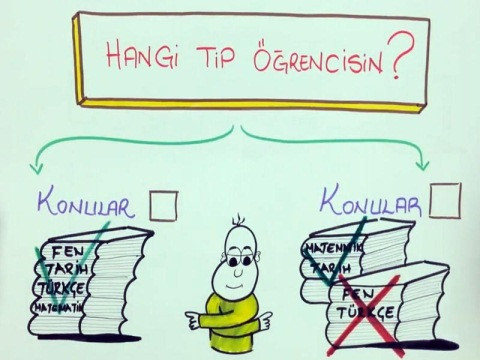 HANGİ TİP ÖĞRENCİSİN?
KONULAR
FEN
TARİH
TÜRKÇE
MATEMATİK
KONULAR
MATEMATİK
TARİH
FEN
TÜRKÇE